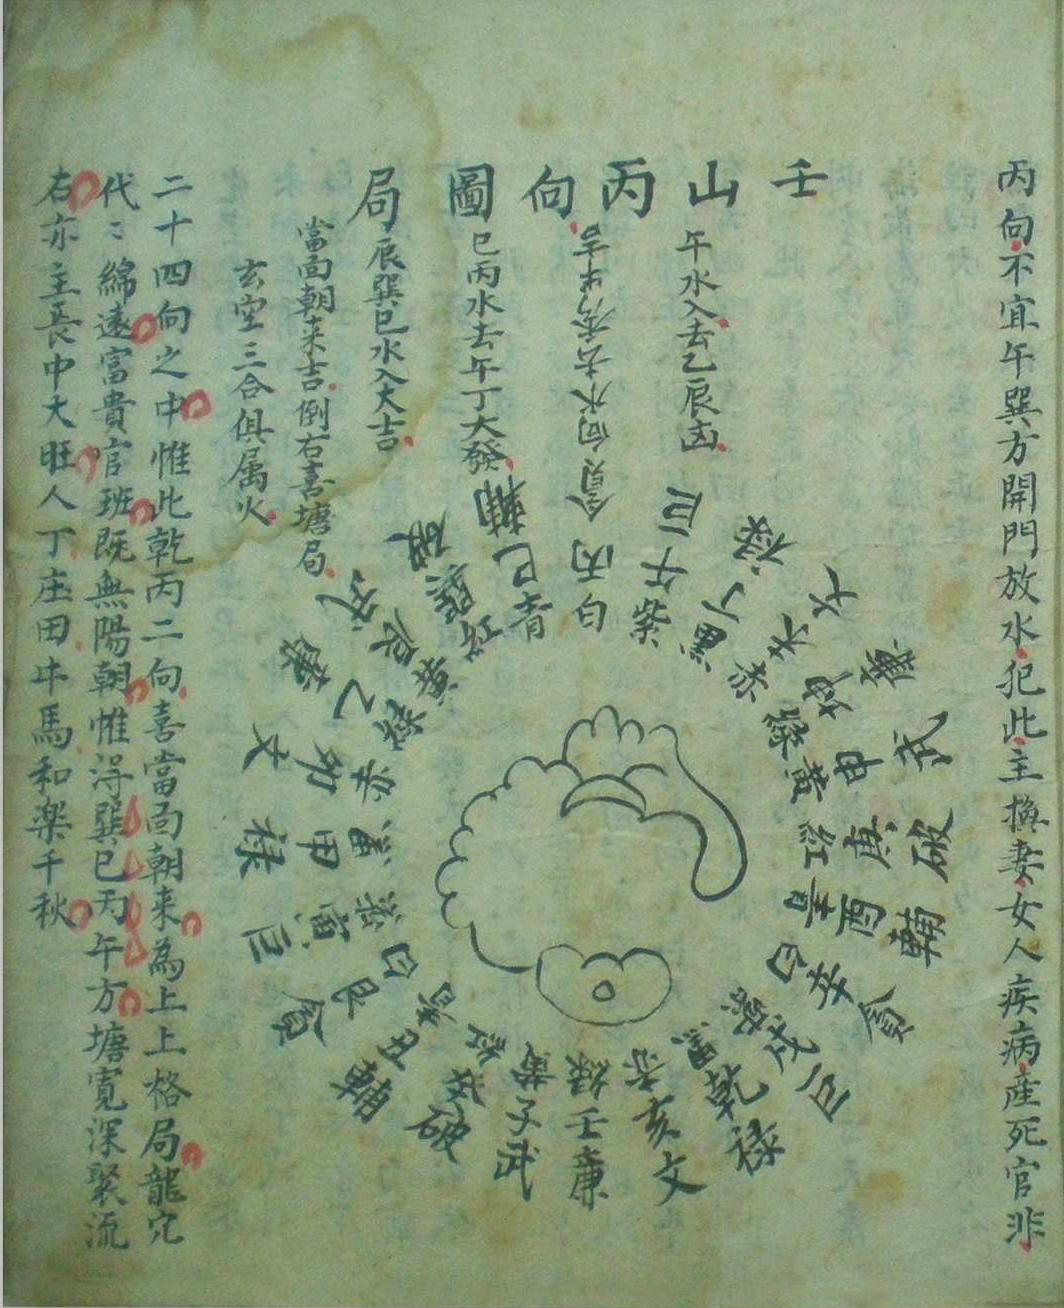 丙向不宜午巽方開門放水犯此主換妻女人疾病産死官非
壬山丙向圖局
午水入去乙辰凶
貪見向水去
巳丙水去午丁大發
辰巽巳水入大吉
當面朝来吉倒右喜塘局
玄空三合俱属火
白丙
紫午巨
黒丁禄
赤未文
坤廉
黃申武
巧庚破
青酉輔
白辛貪
紫戌巨
黒乾禄
赤亥文
綠壬廉
黃子武
紅癸破
丑輔
白艮貪
寅巨
黒甲禄
赤卯文
乙廉
黃辰武
巧巽破
青巳輔
二十四向之中惟此乾丙二向喜當面朝来為上上格局龍穴
代〻綿遠富貴官班既無陽朝惟淂巽巳丙午方塘寬深聚流
右亦主長中大旺人丁庄田牛馬和楽千秋